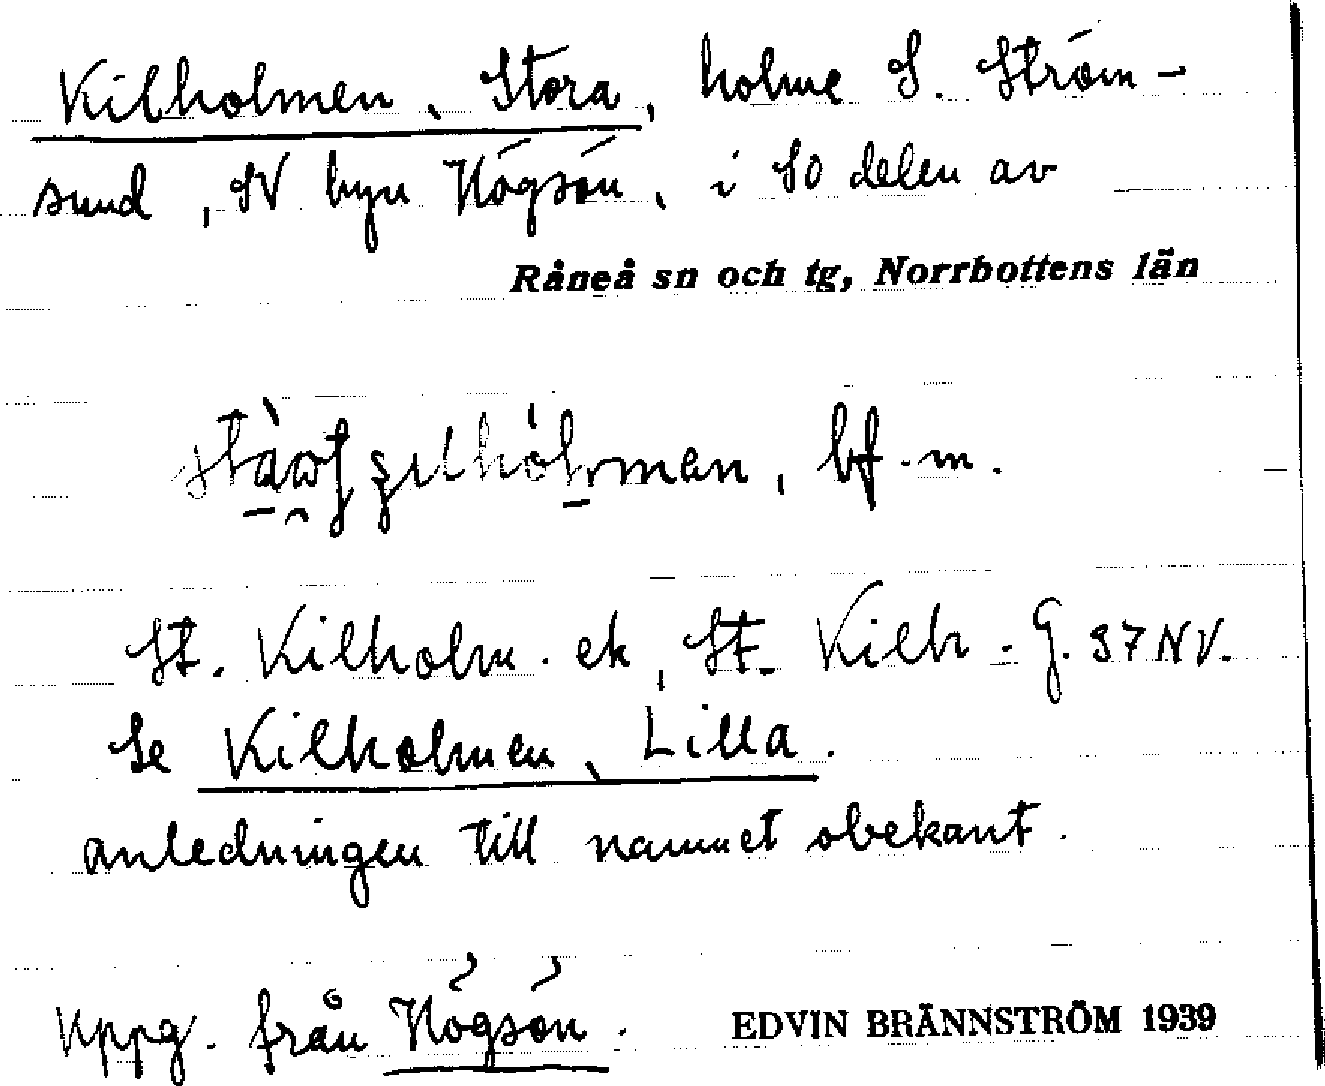 Kilholmen, Stora, holme S. Ström-
sund, SV byn Högsön, i SO delen av
Råneå sn och tg, Norrbottens län
bf. m.
St. Kilholm. ek, St. Kilh. G. 37 NV.
Se Kilholmen, Lilla.
anledningen till namnet obekant.
Uppg. från Högsön. EDVIN BRÄNNSTRÖM 1939